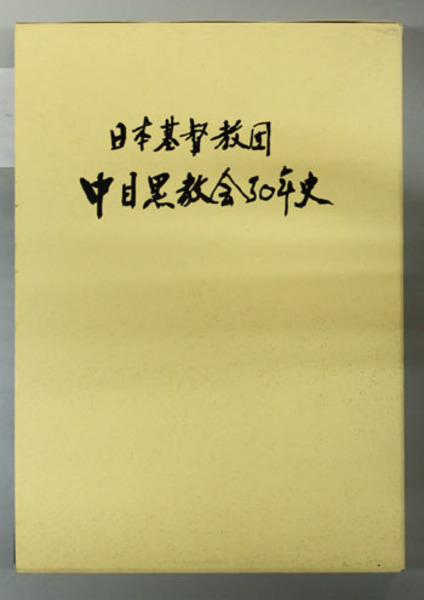 日本基督教団
中目黒教会50年史